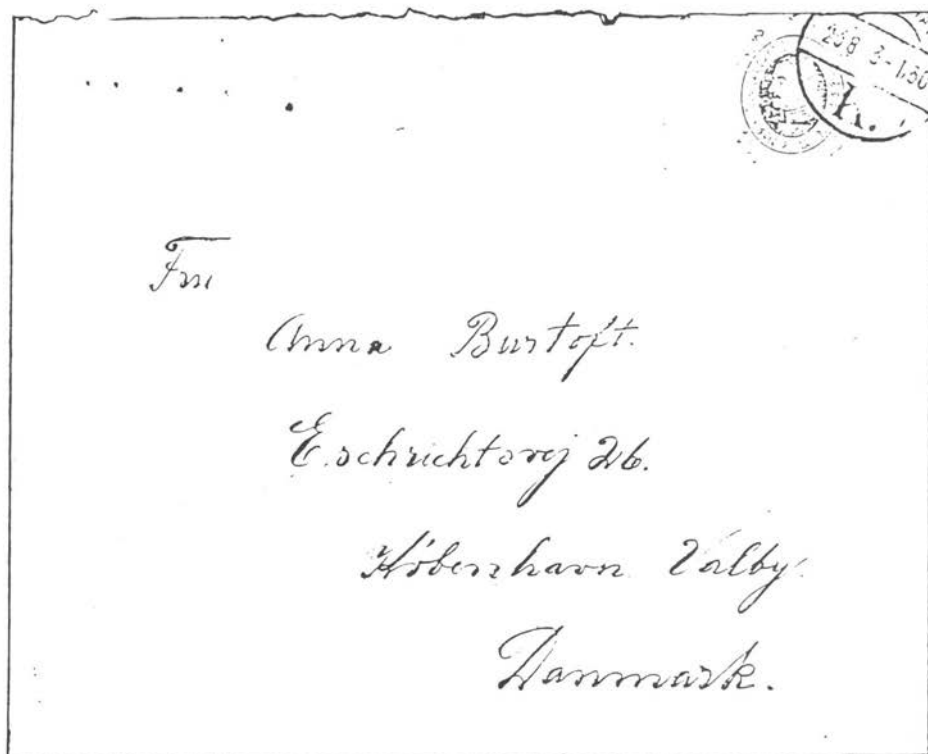 Fru
Anna Burtoft.
Eschrichtsvej 26.
København Valby.
Danmark.